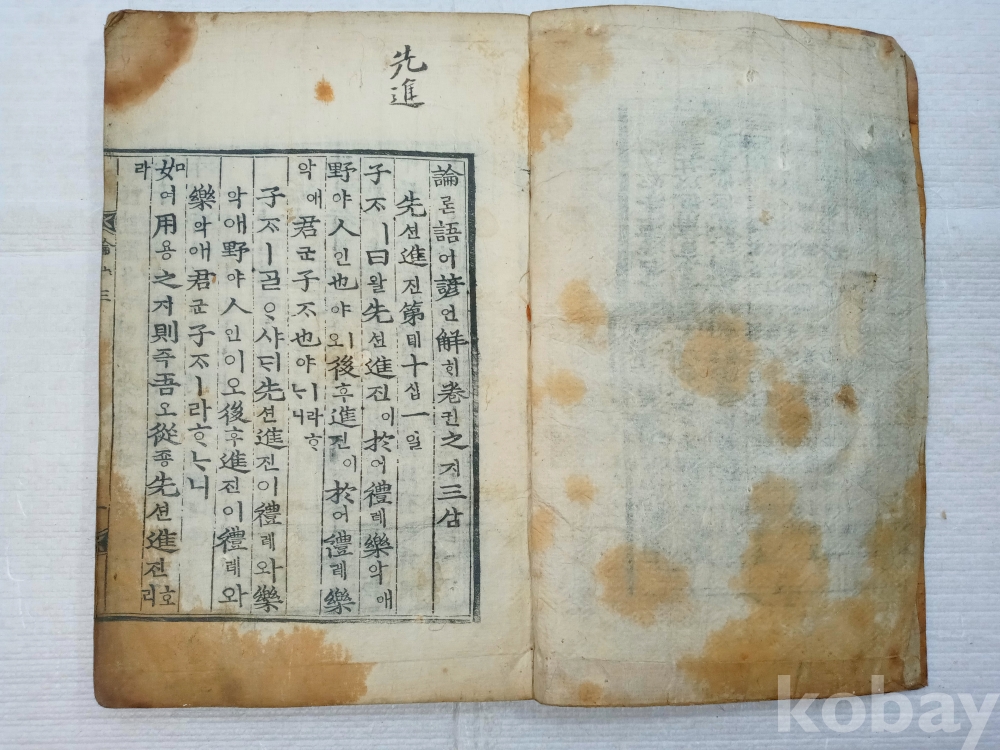 先進
論론語어諺언解ᄒᆡ卷권之지三삼
先션進진第뎨十십一일
子ᄌᆞㅣ曰왈先션進진이於어禮례樂악애
野야人인也야ㅣ오後후進진이於어禮례樂
악애君군子ᄌᆞ也야ㅣ라ᄒᆞᄂᆞ니
子ᄌᆞㅣᄀᆞᆯᄋᆞ샤ᄃᆡ先션進진이禮례와樂
악애野야人인이오後후進진이禮례와
樂악애君군子ᄌᆞㅣ라ᄒᆞᄂᆞ니
如여用용之지則즉吾오從죵先션進진호리라
kobay